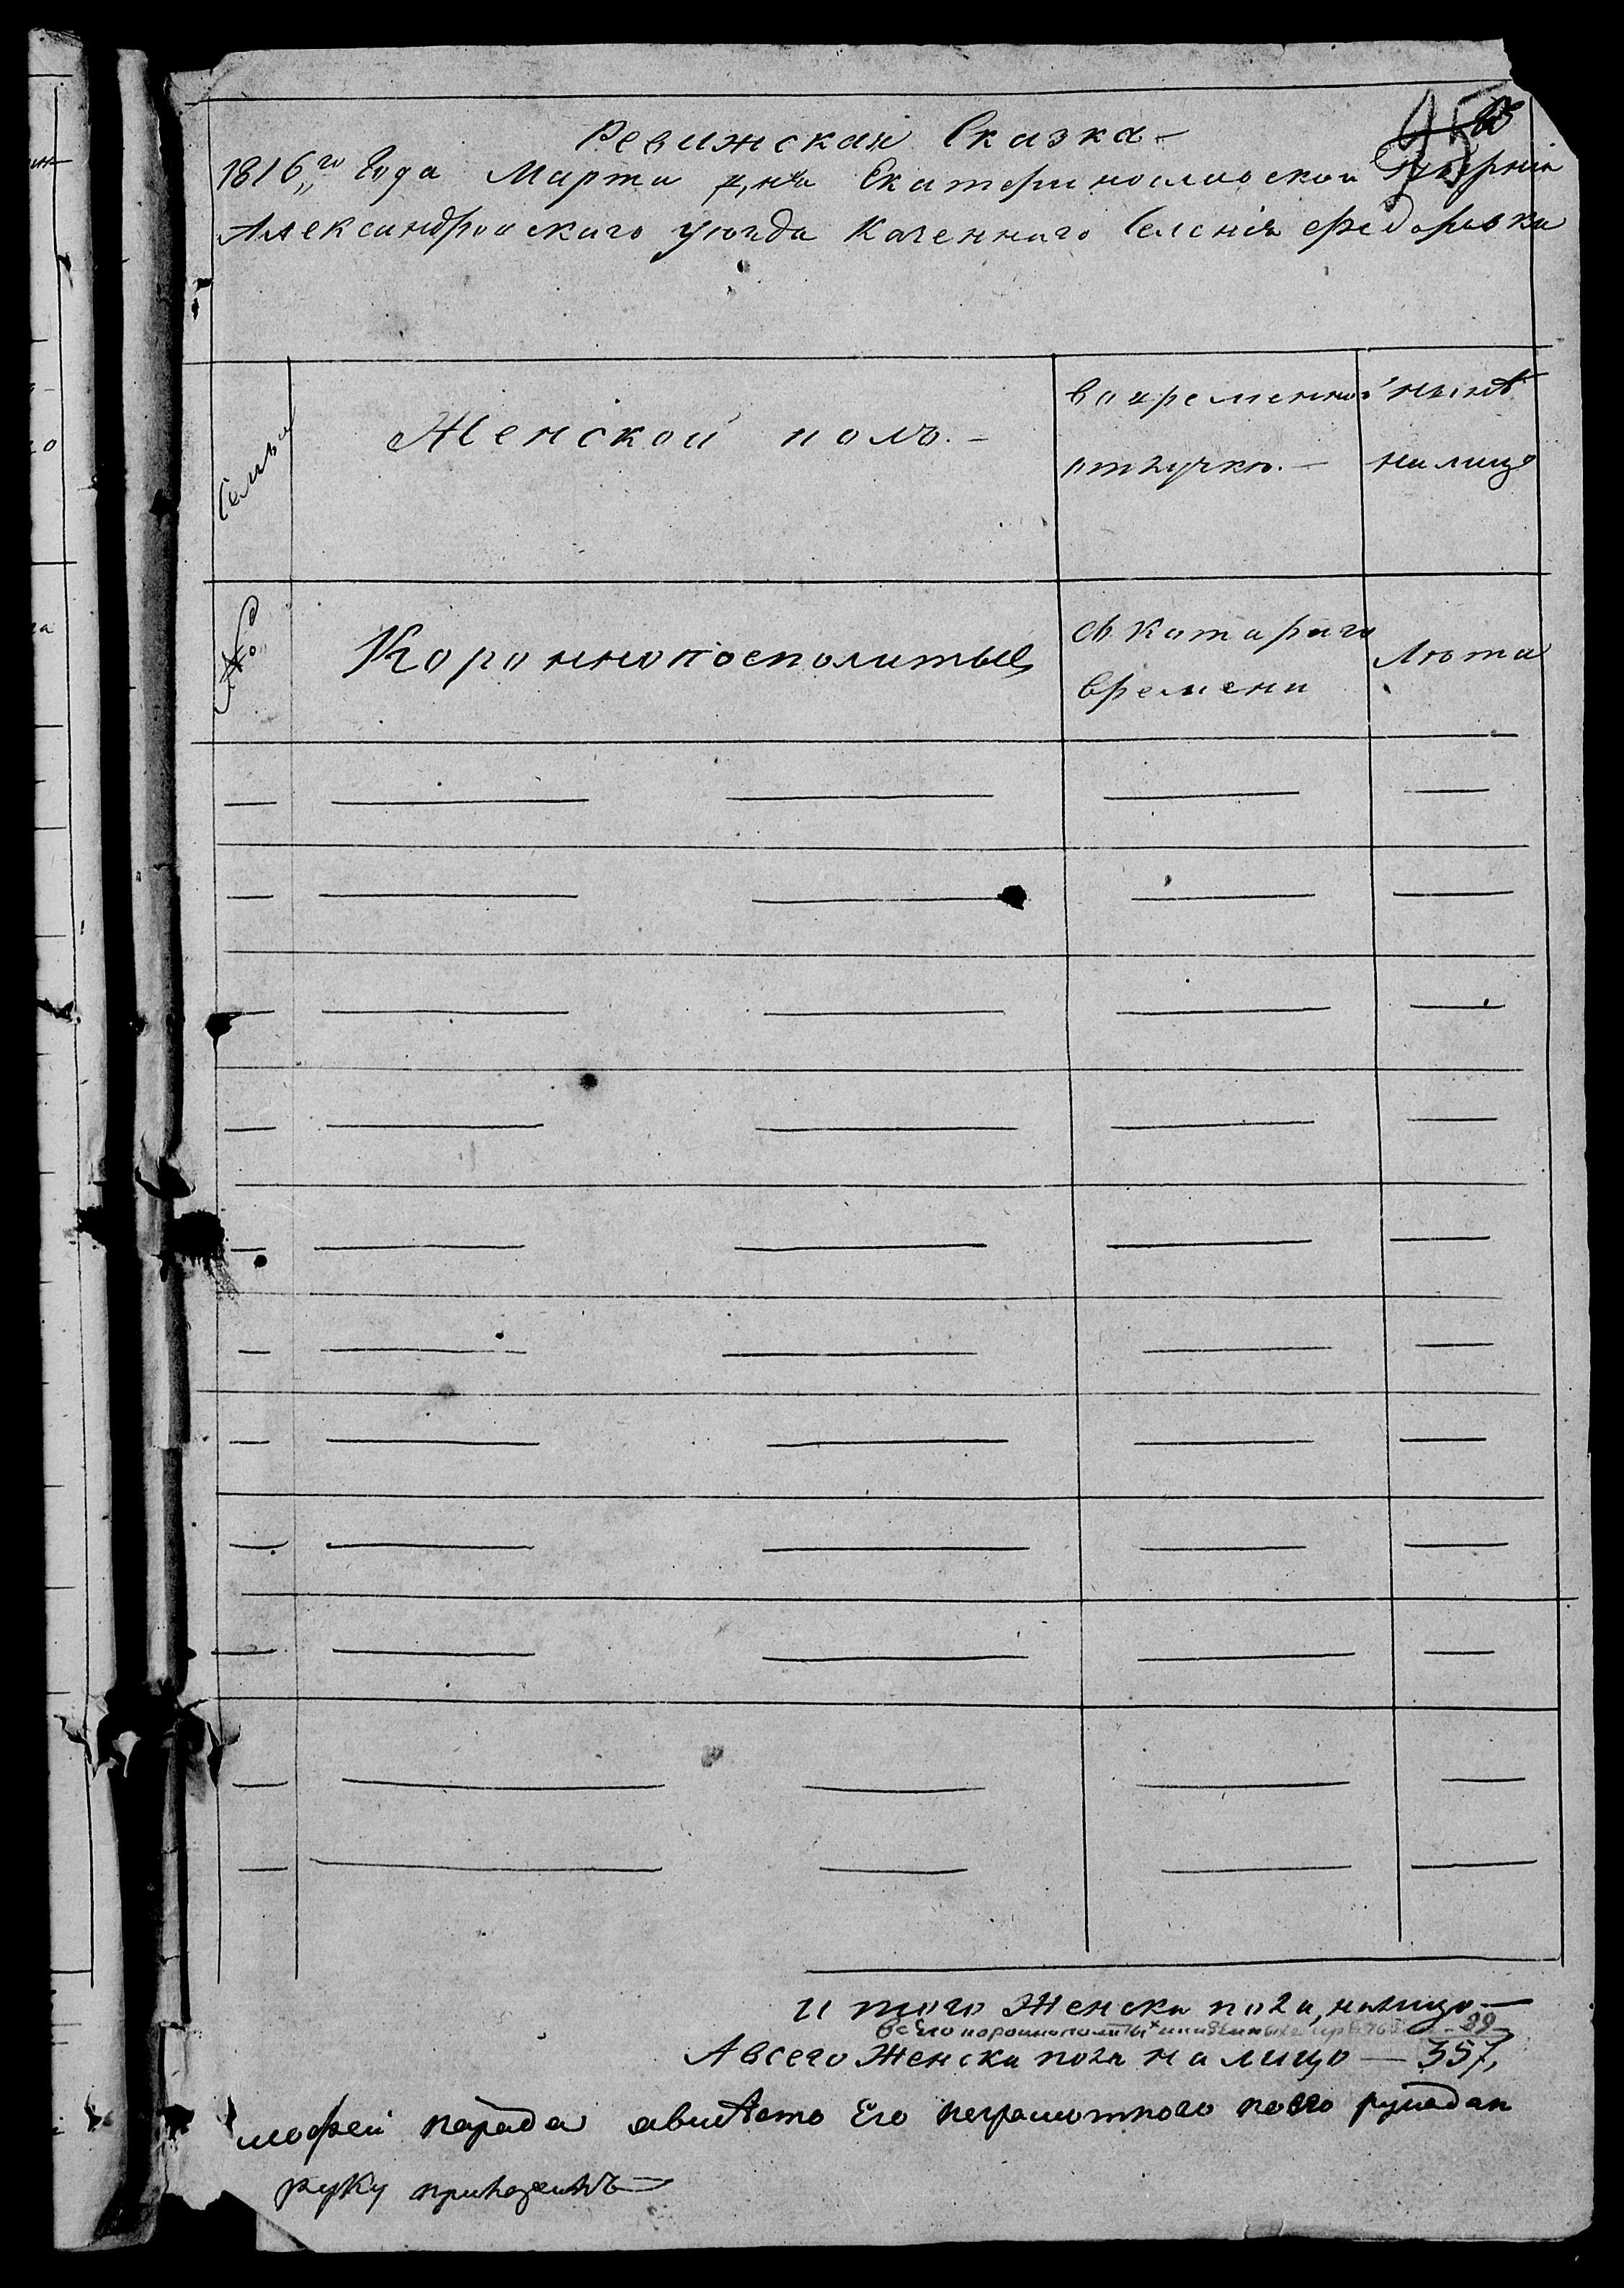 95
Ревижская Сказка
1816го Года Марта дня Екатеринославской Губерніи
Александровскаго уезда Казеннаго Селенія Федоровки
Семьи
Женской полъ.
Во временной отлучке.
ныне на лицо
№
Короннопосполитые
съ котораго времени
Лета
и того Женска пола, налицо
89
А всего Женска пола на лицо — 357,
парада авместо Его неграмотного
руку приложилъ